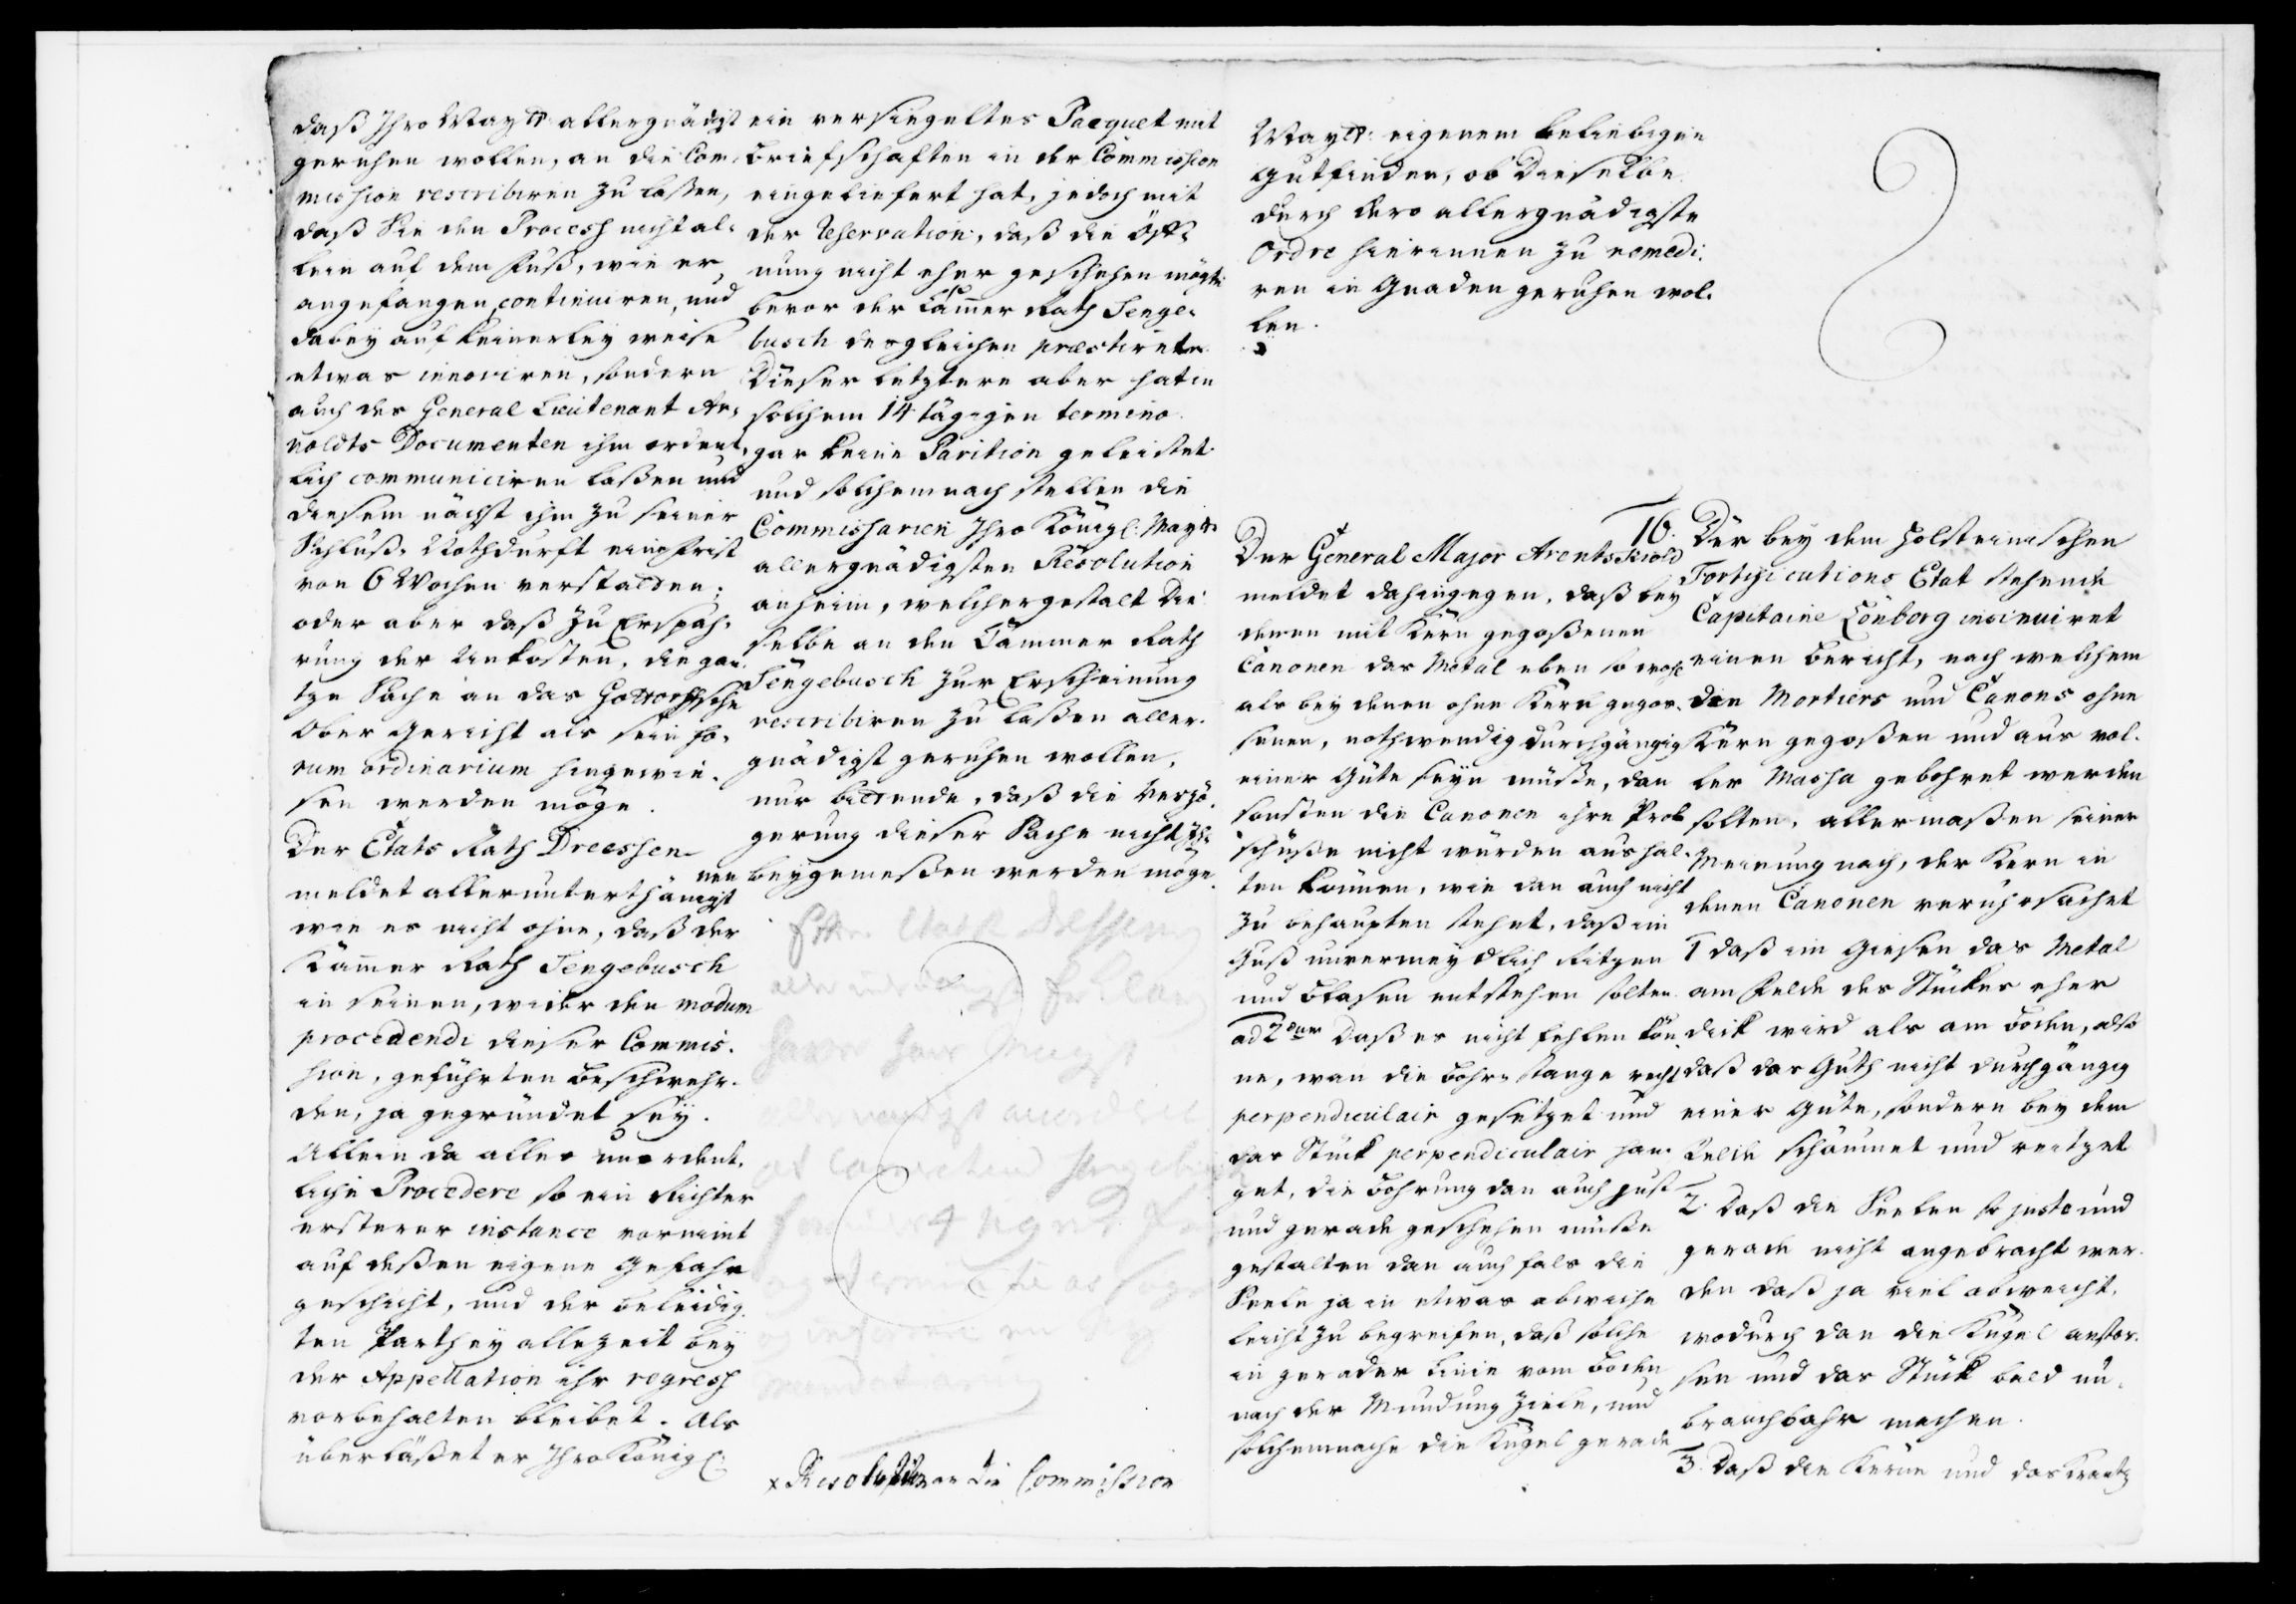 daß Ihro Maytt allergnädigst
geruhen wollen, an die Com-
mission rescribiren zu laßen,
daß Sie den Process nicht al-
lein auf dem Fuß, wie er
angefangen, continuiren, und
dabey auf keinerley weise
etwas innoviren, sondern
auch des General Lieutenant Ar-
noldts Documenten ihm ordent-
lich communiciren laßen und
diesem nächst ihm zu seiner
Schluß-Nothdurft eine Frist
von 6 Wochen verstatten;
oder aber daß zu Erspah-
rung der Unkosten, die gan-
tze Sache an das Gottorffsche
Ober Gericht als sein fo-
rum ordinarium hingewie-
sen werden möge.
Der Etats Rath Dreessen
meldet allerunterthänigst
wie es nicht ohne, daß der
Kammer Rath Jengebusch
in seinen, wider den modum
procedendi dieser Commis-
sion, geführten Beschwehr-
den, ja gegründet sey.
Allein da alles unordent-
liche Procedere so ein Richter
ersterer instance vornimt
auf deßen eigene Gefahr
geschicht, und der beleidig-
ten Parthey allezeit bey
der Appellation ihr regress
vorbehalten bleibet. Als
überläßet er Ihro Königl:
ein versiegeltes Pacquet mit
Briefschaften in der Commission
eingeliefert hat, jedoch mit
der Reservation, daß die Öff-
nung nicht eher geschehen mögte
bevor der Cammer Rath Jenge-
busch desgleichen præstirete.
Dieser letztere aber hat in
solchem 14 tägigen termino
gar keine Parition geleistet
und solchemnach stellen die
Commissarien Ihro Königl: Maytt
allergnädigsten Resolution
anheim, welchergestalt Die-
selbe an den Cammer Rath
Jengebusch zur Erscheinung
rescribiren zu laßen aller-
gnädigst geruhen wollen,
nur bittende, daß die Verzö-
gerung dieser Sache nicht Ih-
nen beygemeßen werden möge.
x Resolution an die Commission
Maytt: eigenem beliebigen
Gutfinden, ob Dieselbe
durch dero allergnädigste
Ordre hierinnen zu remedi-
ren in Gnaden geruhen wol-
len.
16.
Der General Major Arentskiold
meldet dahingegen, daß bey
denen mit Kern gegoßenen
Canonen das Metal eben so wohl
als bey denen ohne Kern gegos-
senen, nothwendig durchgängig
einer Güte seyn müße, dan
sonsten die Canonen ihre Prob
schüße nicht würden aushal-
ten können, wie dan auch nicht
zu behaupten stehet, daß im
Guß unvermeydlich Ritzen
und Blasen entstehen solten
ad 2dum daß es nicht fehlen kön-
ne, wan die Bohr-Stange recht
perpendiculair gesetzet und
das Stück perpendiculair han-
get, die Bohrung dan auch just
und gerade geschehen müße
gestalten dan auch fals die
Seele ja in etwas abweiche
leicht zu begreifen, daß solche
in gerader Linie vom Boden
nach der Mundung ziele, und
solchemnach die Kugel gerade
Der bey dem Holsteinischen
Fortifications Etat stehende
Capitaine Lönborg insinuiret
einen Bericht, nach welchem
die Mortiers und Canons ohne
Kern gegoßen und aus vol-
ler Massa gebohret werden
solten, allermaßen seiner
Meinung nach, der Kern in
denen Canonen veruhrsachet
1 daß im Giesen das Metal
am Felde des Stückes eher
dick wird als am Boden, also
daß das Guth nicht durchgängig
einer Güte, sondern bey dem
Felde schäumet und reitzet
2. daß die Seelen so juste und
gerade nicht angebracht wer-
den daß ja viel abweicht,
wodurch dan die Kugel anstos-
sen und das Stück bald un-
brauchbahr machen.
3. daß die Kerne und das Krantz